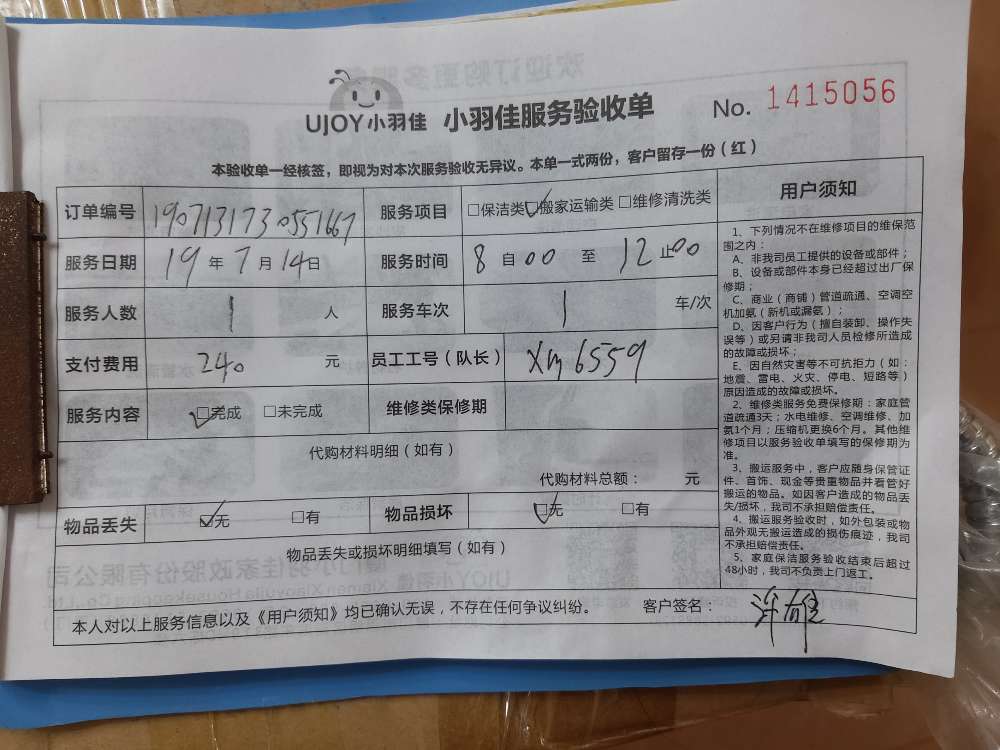 UJOY小羽佳 小羽佳服务验收单 No. 1415056
本验收单一经核签，即视为对本次服务验收无异议。本单一式两份，客户留存一份（红）
订单编号 1907131730551667 服务项目 □保洁类 ☑搬家运输类 □维修清洗类
服务日期 19年7月14日 服务时间 8自00至12止00
服务人数 1人 服务车次 1车/次
支付费用 240元 员工工号（队长） XM6559
服务内容 ☑完成 □未完成 维修类保修期
代购材料明细（如有）
代购材料总额： 元
物品丢失 ☑无 □有 物品损坏 ☑无 □有
物品丢失或损坏明细填写（如有）
本人对以上服务信息以及《用户须知》均已确认无误，不存在任何争议纠纷。 客户签名：
用户须知
1、下列情况不在维修项目的维保范
围之内：
A、非我司员工提供的设备或部件；
B、设备或部件本身已经超过出厂保
修期；
C、商业（商铺）管道疏通、空调空
机加氨（新机或漏氨）；
D、因客户行为（擅自装卸、操作失
误等）或另请非我司人员检修所造成
的故障或损坏；
E、因自然灾害等不可抗拒力（如：
地震、雷电、火灾、停电、短路等）
原因造成的故障或损坏。
2、维修类服务免费保修期：家庭管
道疏通3天；水电维修、空调维修、加
氨1个月；压缩机更换6个月。其他维
修项目以服务验收单填写的保修期为
准。
3、搬运服务中，客户应随身保管证
件、首饰、现金等贵重物品并看管好
搬运的物品。如因客户造成的物品丢
失/损坏，我司不承担赔偿责任。
4、搬运服务验收时，如外包装或物
品外观无搬运造成的损伤痕迹，我司
不承担赔偿责任。
5、家庭保洁服务验收结束后超过
48小时，我司不负责上门返工。